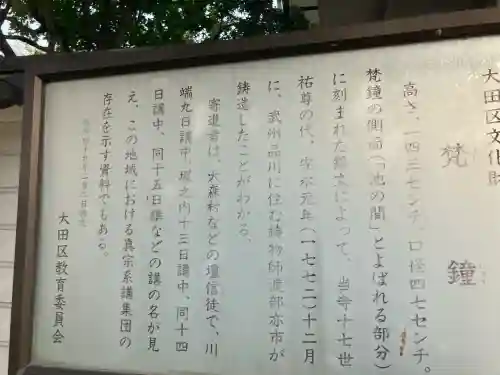 大田区文化財
梵鐘
高さ、一四三センチ。口径四七センチ。
梵鐘の側面(「池の間」とよばれる部分)
に刻まれた銘文によって、当寺十七世
祐尊の代、安永元年(一七七二)十二月
に、武州品川に住む鋳物師渡部亦市が
鋳造したことがわかる。
寄進者は、大森村などの壇信徒で、川
端九日講中、堀之内十三日講中、同十四
日講中、同十五日講などの講の名が見
え、この地域における真宗系講集団の
存在を示す資料でもある。
大田区教育委員会